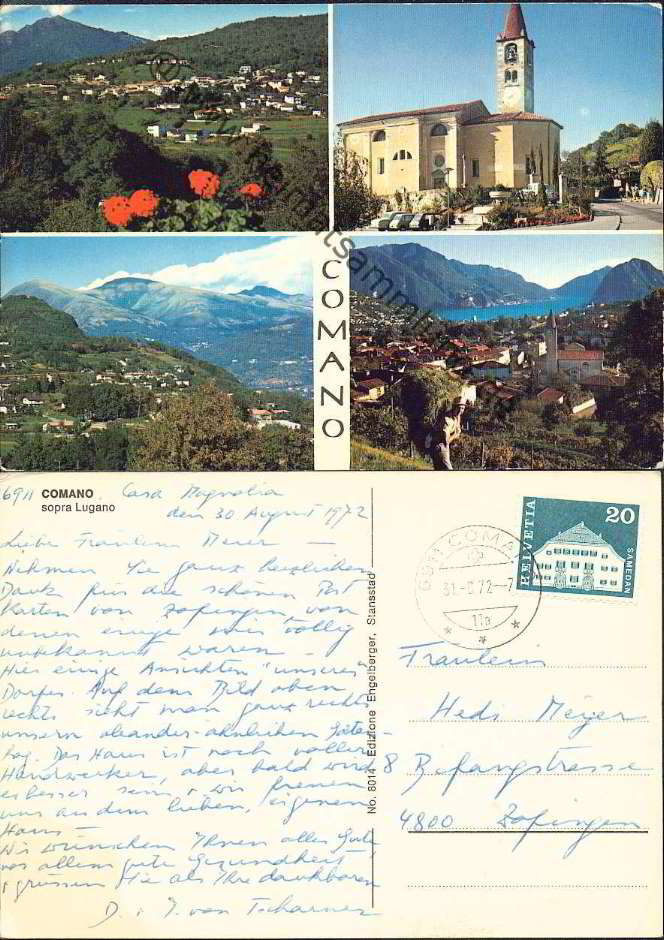 COMANO
6911 COMANO. Casa Magnolia
sopra Lugano
den 30 August 1972
Liebe Fräulein Meier —
Nehmen Sie ganz herzlichen
Dank für die schönen Post
Karten von Zofingen, von
denen einige mir völlig
unbekannt waren —
Hier einige Ansichten "unseres"
Dorfes. Auf dem Bild oben
rechts sieht man ganz rechts
unsern
Das Haus ist noch voller
Handwerker, aber bald wird
es besser sein, u. wir freuen
uns an dem lieben, eigenen
Haus —
Wir wünschen Ihnen alles Gute
vor allem gute Gesundheit
u grüssen Sie als Ihre dankbaren
D. u. J. von Tscharner
No. 8014 Edizione Engelberger, Stansstad
HELVETIA
20
SAMEDAN
6911 COMANO
31.-8.72-7
11a
Fräulein
Hedi Meyer
8 Bifangstrasse
4800 Zofingen